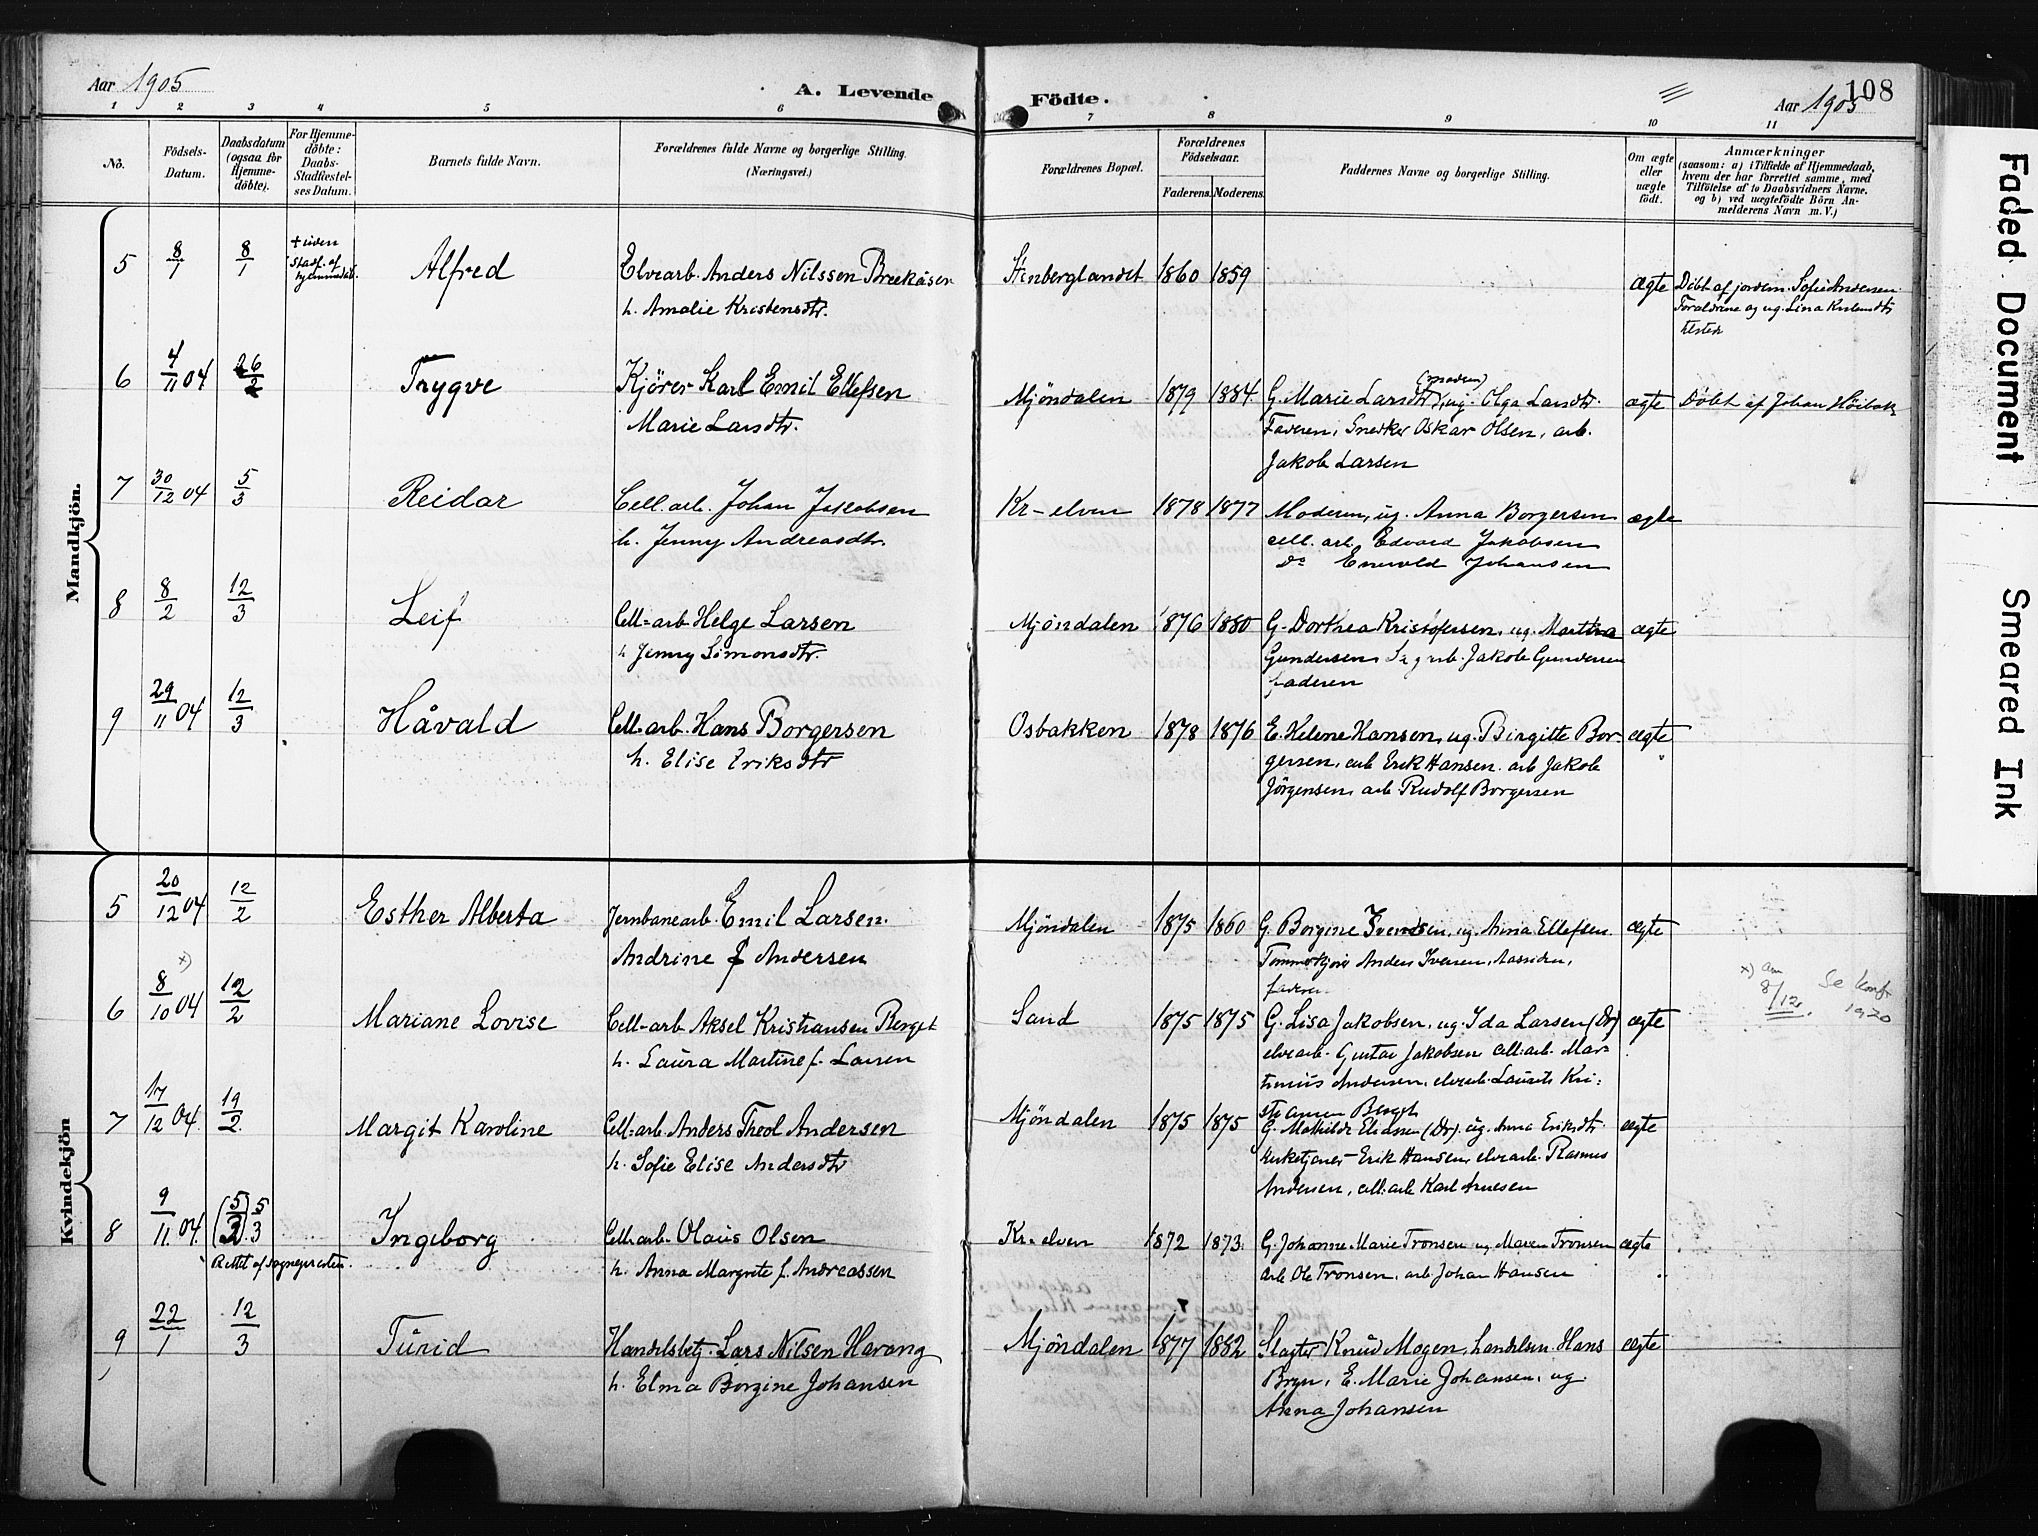 Aar 1905
A. Levende
Födte.
Aar 1905
108
1 2 3 4 5 6 7 8 9 10 11
Nö.
Födsels-Datum.
Daabsdatum (ogsaa for Hjemmedöbte).
For Hjemmedöbte: Daabs-Stadfæstelses Datum.
Barnets fulde Navn.
Forældrenes fulde Navne og borgerlige Stilling.
(Næringsvei.)
Forældrenes Bopæl.
Forældrenes Födselsaar.
Faderens. Moderens.
Faddernes Navne og borgerlige Stilling.
Om ægte eller uægte födt.
Anmærkninger
(saasom: a) i Tilfælde af Hjemmedaab,
hvem der har forrettet samme, med
Tilföielse af to Daabsvidners Navne.
og b) ved uægtefödte Börn Anmelderens Navn m. V.)
Mandkjön.
5 8/1 8/1 + uden Stadf. af hjemmedåb. Alfred Elvearb. Anders Nilssen Brekåsen
h. Amalie Kristensdtr.
Stenberglandet 1860 1859 ægte Döbt af jordem. Sofie Andersen
Forældrene og ug.
tilstede
6 4/11 04 26/2 Trygve Kjörer Karl Emil Ellefsen
Marie Larsdtr.
Mjöndalen 1879 1884 G. Marie Larsdtr. (moderen), ug. Olga Larsdtr. ægte Döbt af Johan
Faderen, Snedker Oskar Olsen, arb.
Jakob Larsen
7 30/12 04 5/3 Reidar Cell. arb. Johan Jakobsen
h. Jenny Andreasdtr.
Kr-elven 1878 1877 Moderen, ug. Anna Borgersen ægte
cell. arb. Edvard Jakobsen
Do Enevold Johansen
8 8/2 12/3 Leif Cell-arb Helge Larsen
h. Jenny Simonsdtr.
Mjöndalen 1876 1880 G. Dorthea Kristofersen, ug. Martha ægte
Gundersen, arb. Jakob Gundersen
faderen
9 29/11 04 12/3 Håvald Cell-arb. Hans Borgersen
h. Elise Eriksdtr
Osbakken 1878 1876 E. Helene Hansen, ug. Birgitte Bor- ægte
gersen, arb Erik Hansen. arb Jakob
Jörgensen, arb Rudolf Borgersen
Kvindekjön
5 20/12 04 12/2 Esther Alberta Jernbanearb. Emil Larsen.
Andrine f Andersen
Mjöndalen 1875 1860 G. Borgine Svendsen, ug. Anna Ellefsen ægte
Tömmerkjörer Anders Iversen,
faderen
6 8/10 04 x) 12/2 Mariane Lovise Cell-arb Aksel Kristiansen Berget
h. Laura Martine f. Larsen
Sand 1875 1875 G. Lisa Jakobsen, ug. Ida Larsen (Dr) ægte x) am 8/12. Se konf. 1920
elvearb. Gustav Jakobsen cell-arb. Mar-
tinius Andersen, elvearb. Laurits Kri-
stiansen Berget
7 17/12 04. 19/2. Margit Karoline Cell-arb. Anders Theol Andersen
h. Sofie Elise Andersdtr
Mjöndalen 1875 1875 G. Mathilde Eliassen (Dr). ug. Anna Eriksdtr. ægte
kirketjener Erik Hansen, elvearb. Rasmus
Andersen, cell-arb Karl Arnesen
8 9/11 04. (5/2) 5/3 Ingeborg Cell-arb. Olaus Olsen
Rettet af sognepresten. h. Anna Margrete f. Andreassen
Kr-elven 1872 1873 G. Johanne Marie Tronsen ug. Maren Tronsen ægte
Arb Ole Tronsen, arb Johan Hansen
9 22/1 12/3 Turid Handelsbetj. Lars Nilsen Havang
h. Elma Borgine Johansen
Mjöndalen 1877 1882 Slagter Knud Mogen, handelsm. Hans ægte
Bryn, E. Marie Johansen, ug.
Anna Johansen
Faded Document
Smeared Ink